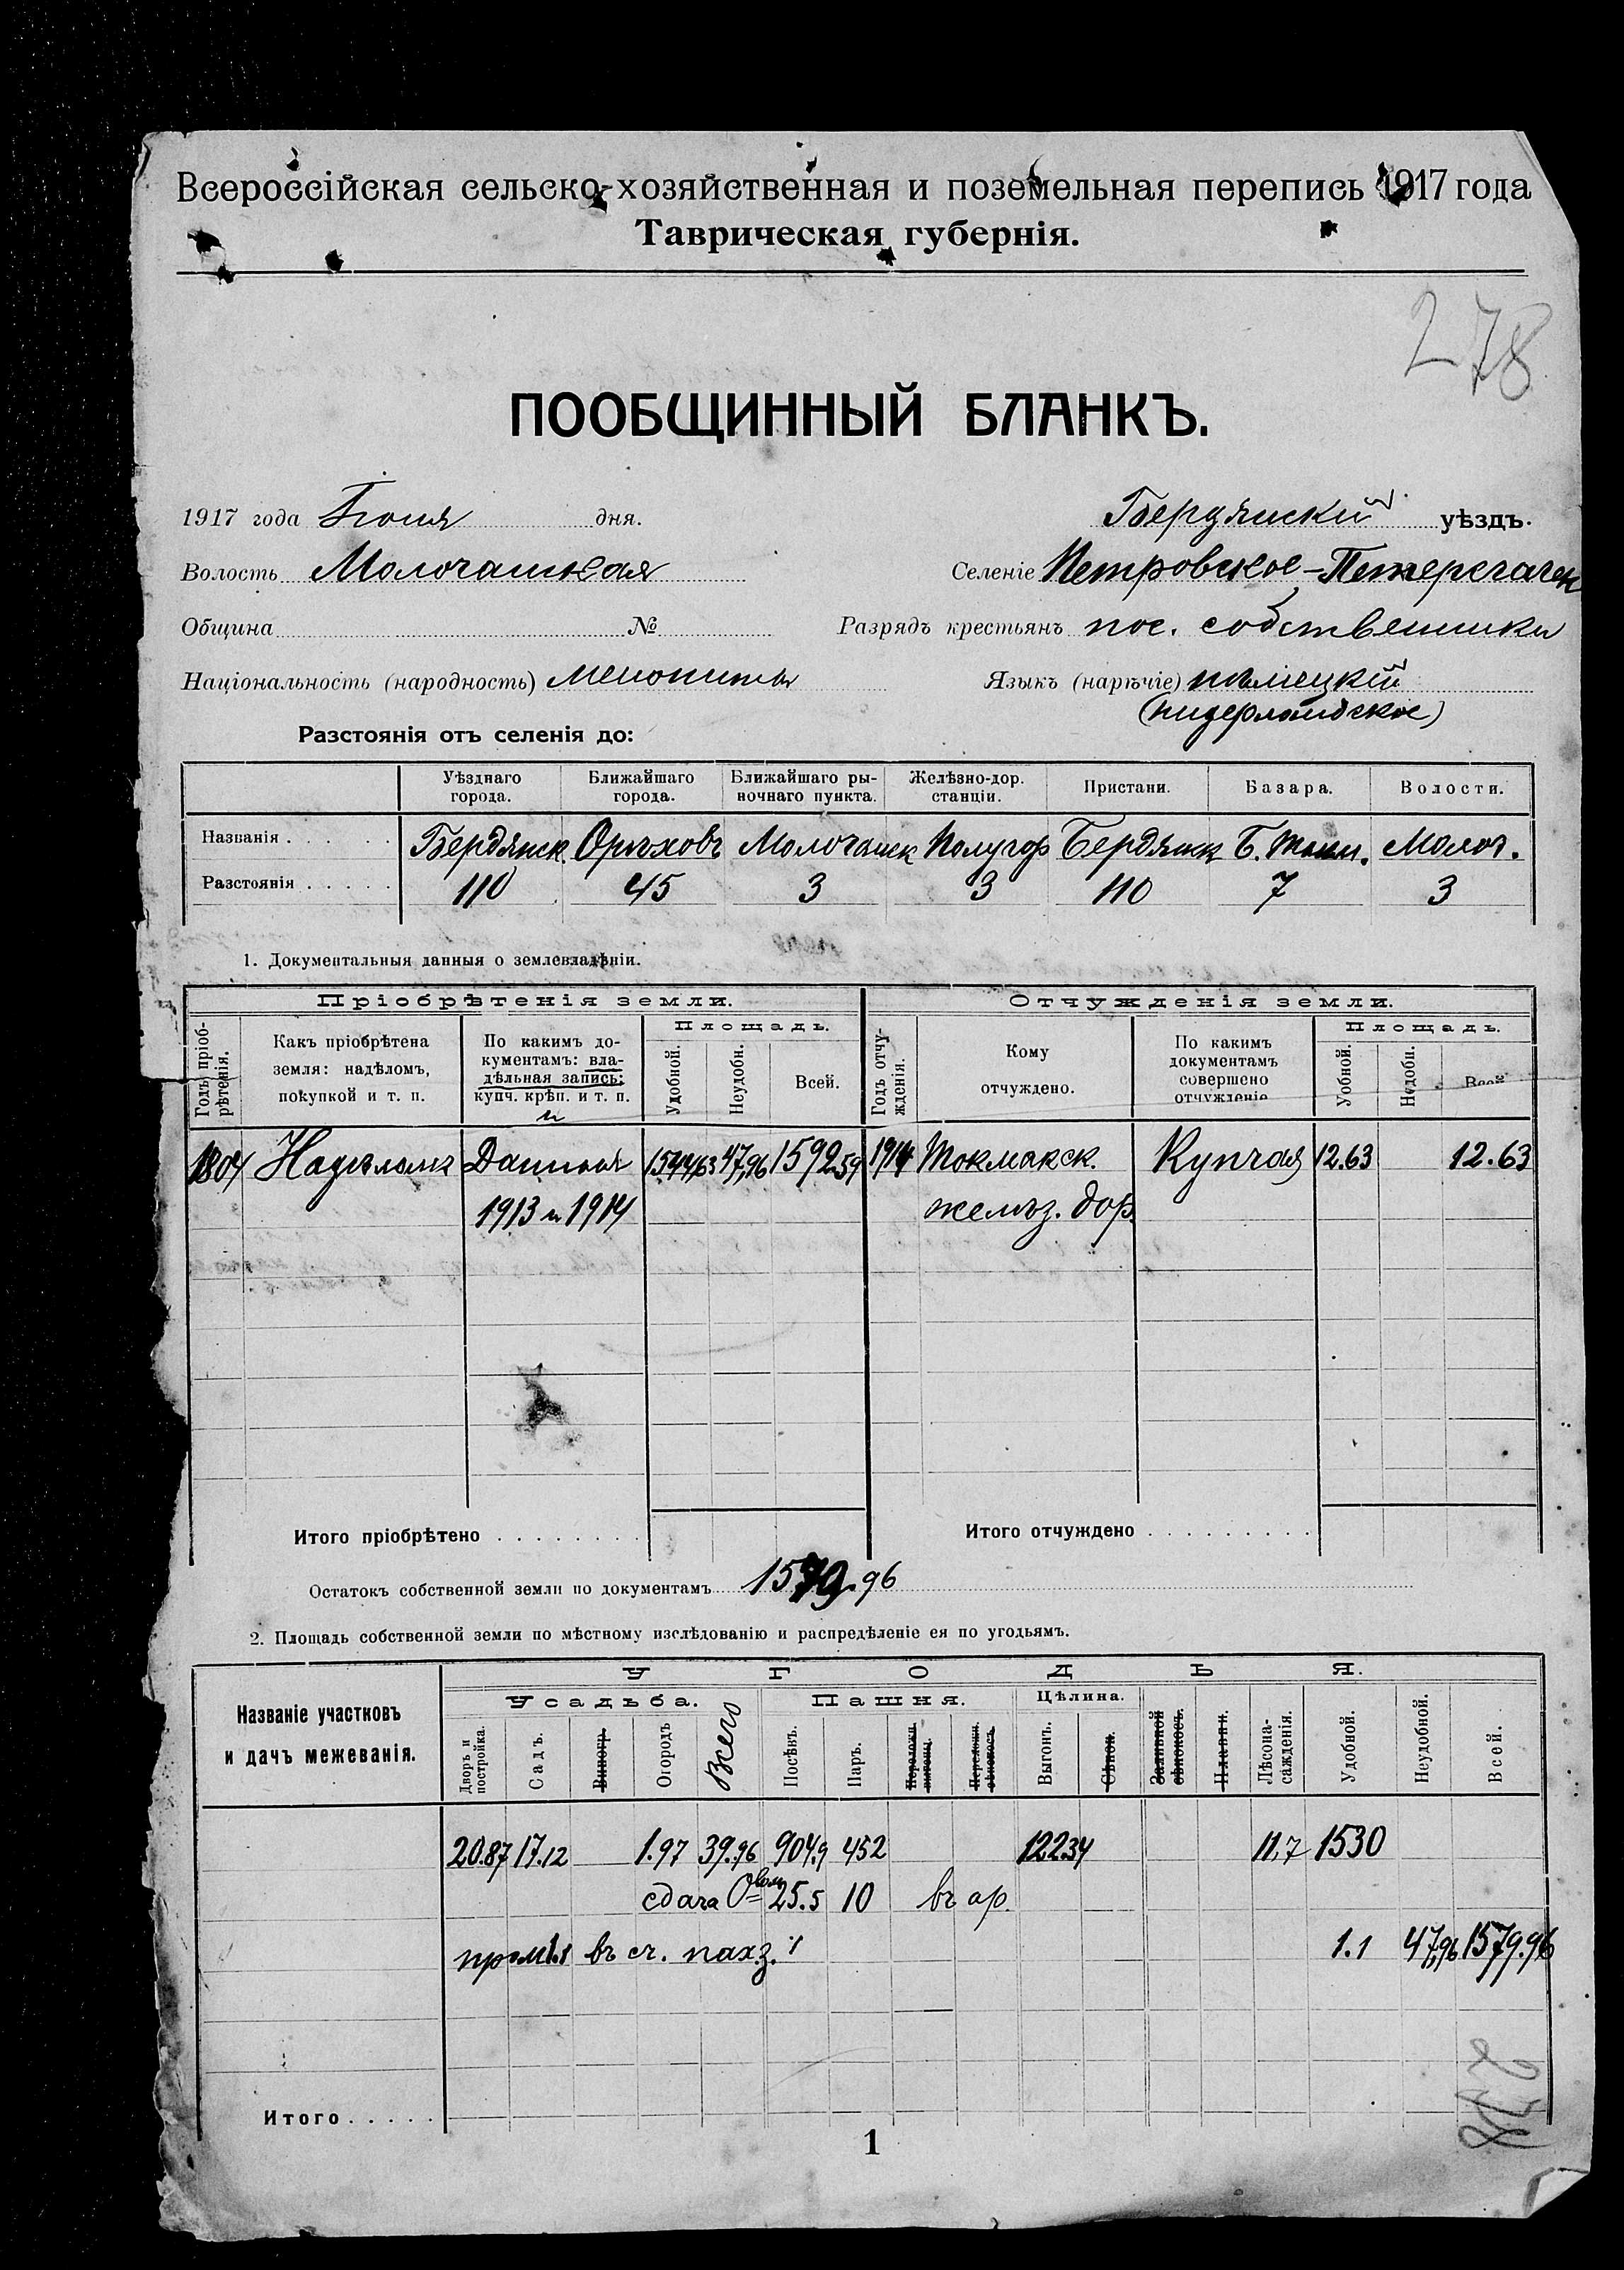 Всероссійская сельско-хозяйственная и поземельная перепись 1917 года
Таврическая губернія.
278
ПООБЩИННЫЙ БЛАНКЪ.
1917 года Іюня дня. Бердянскій уѣздъ.
Волость Молочанская Селеніе Петровское-Петерсгаген
Община № Разрядъ крестьянъ пос. собственники
Національность (народность) менониты Языкъ (нарѣчіе) нѣмецкій
(нидерландское)
Разстоянія отъ селенія до:
Уѣзднаго города. Ближайшаго города. Ближайшаго рыночнаго пункта. Желѣзно-дор. станціи. Пристани. Базара. Волости.
Названія . . . . . Бердянск Орѣховъ Молочанск Полугор Бердянск Б. Токм. Молоч.
Разстоянія . . . . . 110 45 3 3 110 7 3
1. Документальныя данныя о землевладѣніи.
Пріобрѣтенія земли. Отчужденія земли.
Годъ пріобрѣтенія. Какъ пріобрѣтена земля: надѣломъ, покупкой и т. п. По какимъ документамъ: владѣльная запись; купч. крѣп. и т. п. Площадь. Удобной. Неудобн. Всей. Годъ отчужденія. Кому отчуждено. По какимъ документамъ совершено отчужденіе Площадь. Уобной. Неудобн. Всей
и
1804 Надѣломъ Данная 1544,63 47,96 1592,59 1914 Токмакск. Купчая 12.63 12.63
1913 и 1914 желѣз. дор.
Итого пріобрѣтено . . . . . . . . Итого отчуждено . . . . . . . . .
Остатокъ собственной земли по документамъ 1579.96
2. Площадь собственной земли по мѣстному изслѣдованію и распредѣленіе ея по угодьямъ.
Названіе участковъ и дачъ межеванія. УГОДЬЯ.
Усадьба. Пашня. Цѣлина.
Дворъ и постройка. Садъ. Виногр. Огородъ Всего Посѣвъ. Паръ. Переложн. выгонц. Переложн. сѣнокосъ. Выгонъ. Сѣнок. Заливной сѣнокосъ. Плавни. Лѣсонасажденія. Удобной. Неудобной. Всей.
20.87 17.12 1.97 39.96 904.9 452 122.34 11.7 1530
сдача 25.5 10 въ ар.
пром. 1.1 въ сч. пах.з. 1.1 47,96 1579.96
Итого . . . . .
1
278